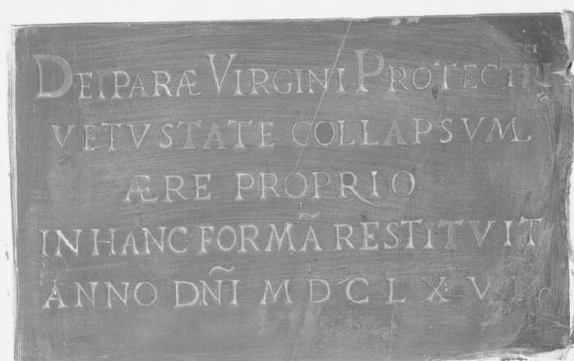 DEIPARÆ VIRGINI PROTECTRI
VETVSTATE COLLAPSVM
ÆRE PROPRIO
IN HANC FORMÃ RESTITVIT
ANNO DÑI